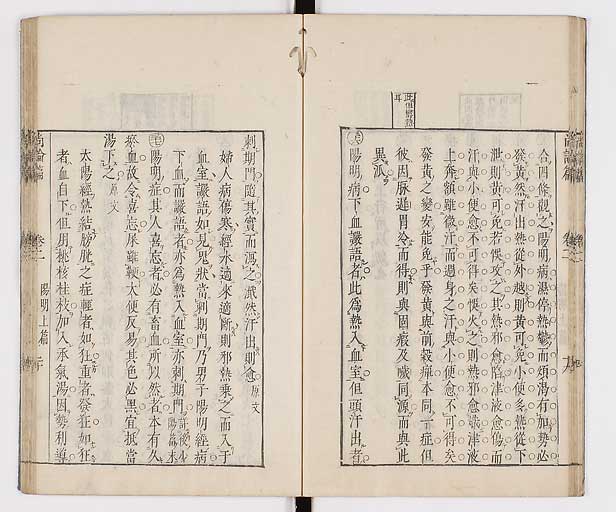 合四條觀之陽明病濕停熱鬱而煩渴有加勢必
發黃然汗出熱從外越則黃可免小便多熱從下
泄則黃可免若悞攻之其熱邪愈陷津液愈傷而
汗與小便愈不可得矣悞火之則熱邪愈熾津液
上奔額雖微汗而週身之汗與小便愈不可得矣
發黃之變安能免乎發黃與前穀癉本同一症但
彼因脉遲胃冷而得則與固瘕及噦同源而與此
異派
陽明病下血讝語者此為熱入血室但頭汗出者
尚論篇 卷二
刺期門隨其實而瀉之濈然汗出則愈原文
婦人病傷寒經水適來適斷則邪熱乘之而入于
血室讝語如見鬼狀當刺期門乃男子陽明經病
下血而讝語者亦為熱入血室亦刺期門詳後少陽篇末
陽明症其人喜忘者必有畜血所以然者本有久
瘀血故令喜忘屎雖鞕大便反易其色必黑宜抵當
湯下之原文
太陽經熱結膀胱之症輕者如狂重者發狂如狂
者血自下但用桃核桂枝加入承氣湯因勢利導
尚論篇 卷二 陽明上篇 二十